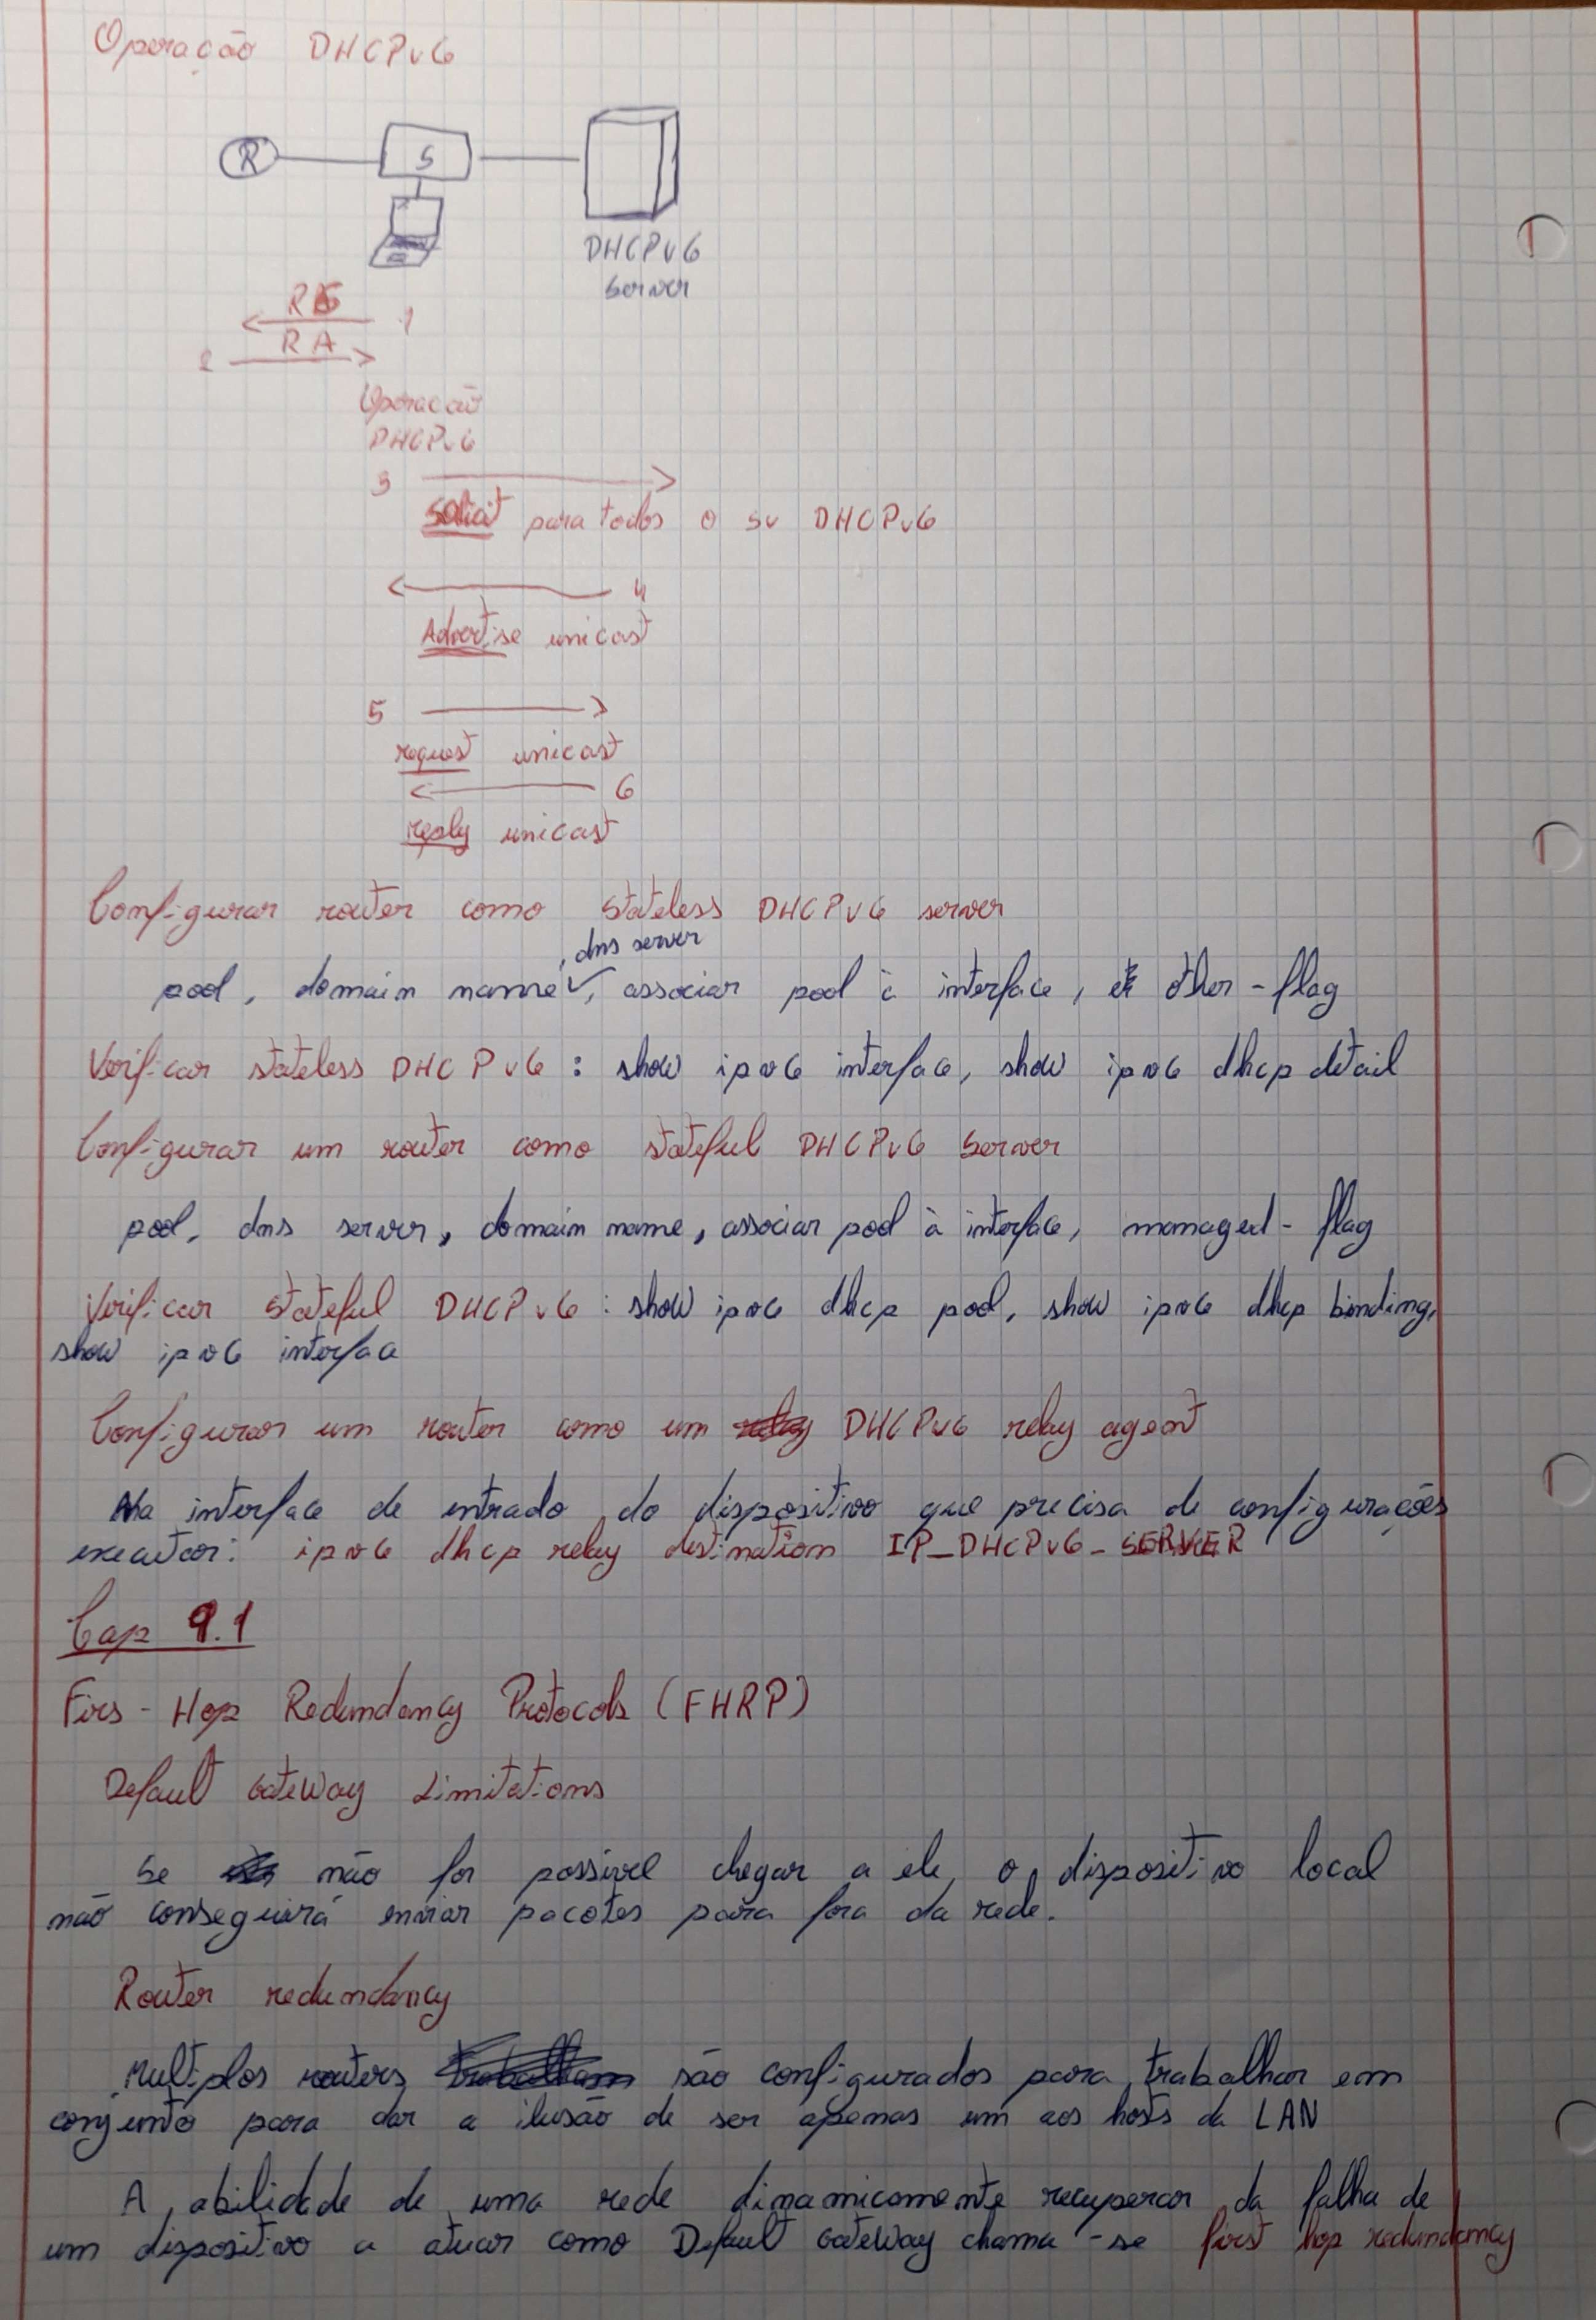 Operação DHCPv6
R
S
DHCPv6
Server
RS
1
RA
2
Operação
DHCPv6
3
Solicit para todos o sv DHCPv6
4
Advertise unicast
5
request unicast
6
reply unicast
Configurar router como stateless DHCPv6 server
, dns server
pool, domain name, associar pool à interface, other-flag
Verificar stateless DHCPv6: show ipv6 interface, show ipv6 dhcp detail
Configurar um router como stateful DHCPv6 Server
pool, dns server, domain name, associar pool à interface, managed-flag
Verificar stateful DHCPv6: show ipv6 dhcp pool, show ipv6 dhcp binding,
show ipv6 interface
Configurar um router como um DHCPv6 relay agent
Na interface de entrado do dispositivo que precisa de configurações
executar: ipv6 dhcp relay destination IP_DHCPv6_SERVER
Cap 9.1
Firs-Hop Redundancy Protocols (FHRP)
Default Gateway Limitations
Se não for possível chegar a ele, o dispositivo local
não conseguirá enviar pacotes para fora da rede.
Router redundancy
Multiplos routers são configurados para trabalhar em
conjunto para dar a ilusão de ser apenas um aos hosts da LAN
A abilidade de uma rede dinamicamente recuperar da falha de
um dispositivo a atuar como Default Gateway chama-se first hop redundancy